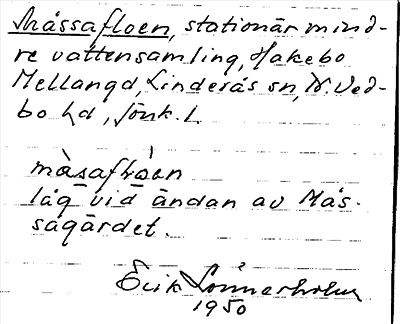 Måssafloen, stationär mind-
re vattensamling, Hakebo
Mellangd, Linderås sn, N. Ved-
bo hd, Jönk. l.
låg vid ändan av Mås-
sagärdet.
Erik Lönnerholm
1950